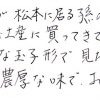 が松本に居る孫の
土産に買ってきて
な玉子形で見た
濃厚な味で、